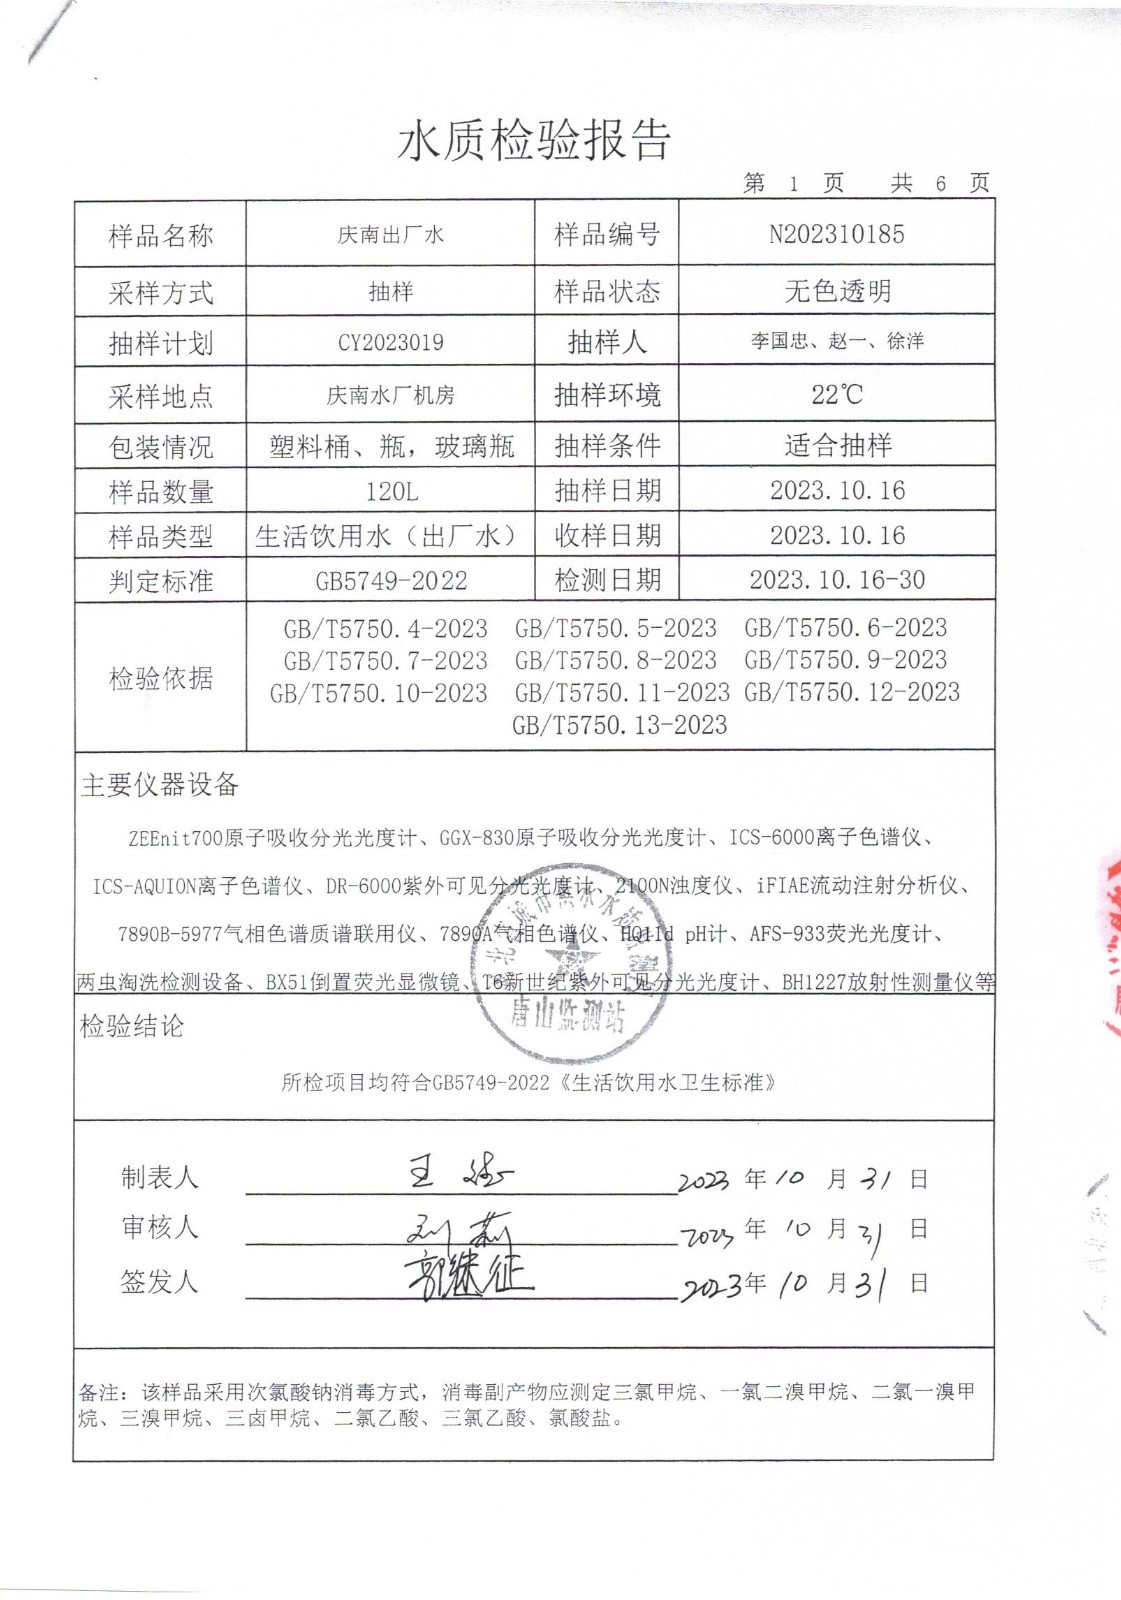 水质检验报告
第 1 页 共 6 页
样品名称 庆南出厂水 样品编号 N202310185
采样方式 抽样 样品状态 无色透明
抽样计划 CY2023019 抽样人 李国忠、赵一、徐洋
采样地点 庆南水厂机房 抽样环境 22℃
包装情况 塑料桶、瓶，玻璃瓶 抽样条件 适合抽样
样品数量 120L 抽样日期 2023.10.16
样品类型 生活饮用水（出厂水） 收样日期 2023.10.16
判定标准 GB5749-2022 检测日期 2023.10.16-30
GB/T5750.4-2023 GB/T5750.5-2023 GB/T5750.6-2023
GB/T5750.7-2023 GB/T5750.8-2023 GB/T5750.9-2023
检验依据
GB/T5750.10-2023 GB/T5750.11-2023 GB/T5750.12-2023
GB/T5750.13-2023
主要仪器设备
ZEEnit700原子吸收分光光度计、GGX-830原子吸收分光光度计、ICS-6000离子色谱仪、
ICS-AQUION离子色谱仪、DR-6000紫外可见分光光度计、2100N浊度仪、iFIAE流动注射分析仪、
7890B-5977气相色谱质谱联用仪、7890A气相色谱仪、HQ11d pH计、AFS-933荧光光度计、
两虫淘洗检测设备、BX51倒置荧光显微镜、T6新世纪紫外可见分光光度计、BH1227放射性测量仪等
唐山监测站
检验结论
所检项目均符合GB5749-2022《生活饮用水卫生标准》
制表人 王 2023 年 10 月 31 日
审核人 刘莉 2023 年 10 月 31 日
签发人 郭继征 2023年 10 月 31 日
备注：该样品采用次氯酸钠消毒方式，消毒副产物应测定三氯甲烷、一氯二溴甲烷、二氯一溴甲
烷、三溴甲烷、三卤甲烷、二氯乙酸、三氯乙酸、氯酸盐。